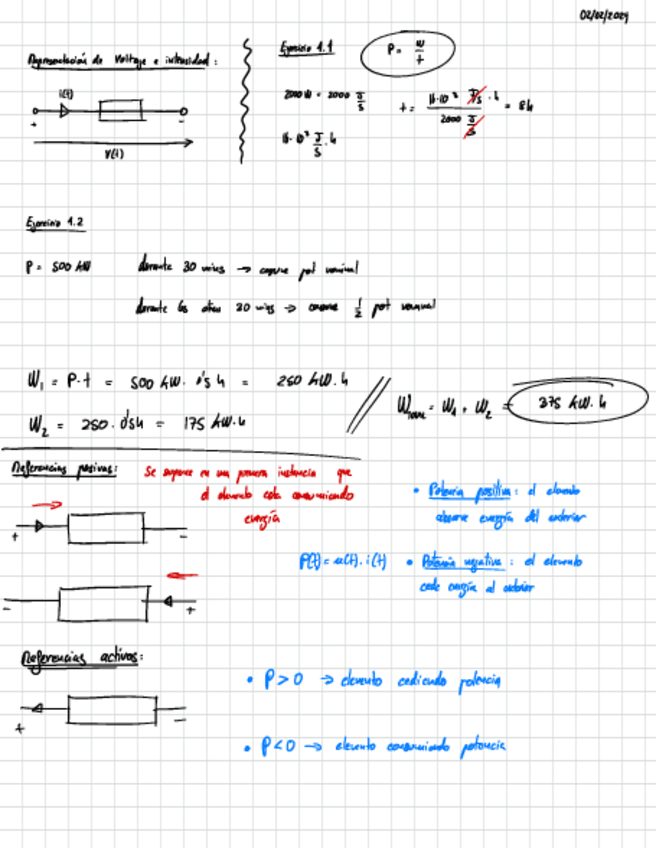 02/02/2024
Representación de Voltaje e intensidad:
i(t)
+ -
V(t)
Ejercicio 1.1
P = W/t
2000 W = 2000 J/s
16·10³ J/s · h
t = 16·10³ J/s · h / 2000 J/s = 8h
Ejercicio 1.2
P = 500 kW durante 30 mins → consume pot nominal
durante los otros 30 mins → consume 1/2 pot nominal
W₁ = P·t = 500 kW · 0'5 h = 250 kW·h
W₂ = 250 · 0'5h = 175 kW·h
W = W₁ + W₂ = 375 kW·h
Referencias pasivas: Se supone en una primera instancia que
el elemento está consumiendo
energía
+ -
- +
• Potencia positiva: el elemento
absorve energía del exterior
P(t) = u(t) · i(t) • Potencia negativa: el elemento
cede energía al exterior
Referencias activas:
+ -
• P > 0 → elemento cediendo potencia
• P < 0 → elemento consumiendo potencia